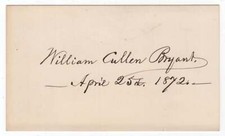 William Cullen Bryant.
— April 25th. 1872. —